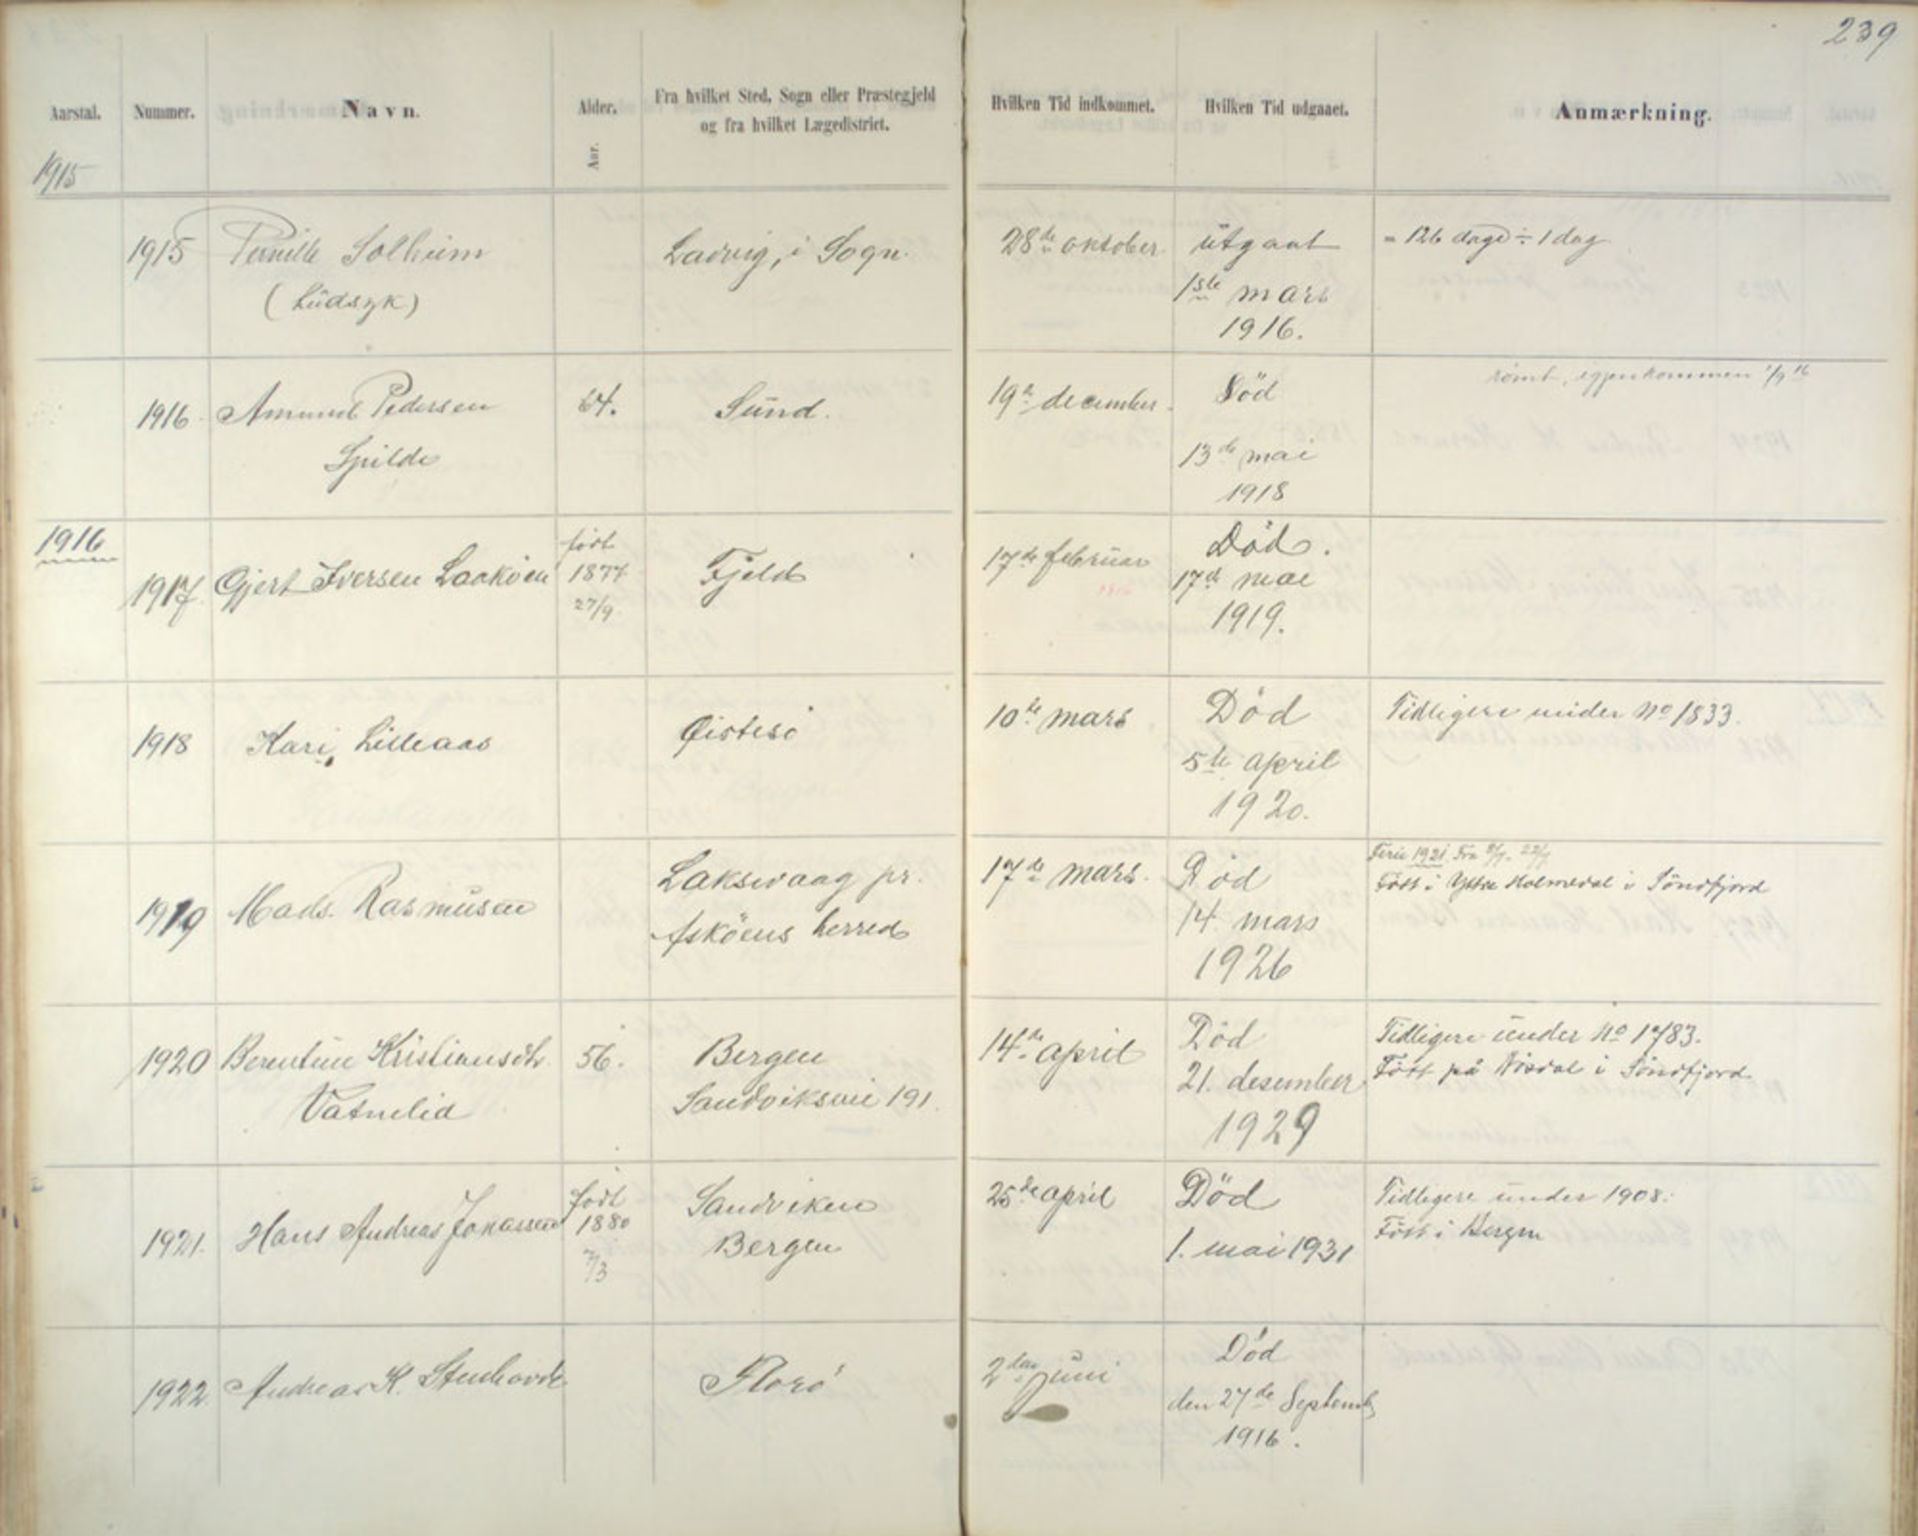 239
Aarstal. Nummer. Navn. Alder. Aar. Fra hvilket Sted, Sogn eller Præstegjeld
og fra hvilket Lægedistrict.
Hvilken Tid indkommet. Hvilken Tid udgaaet. Anmærkning.
1915
1915 Pernille Solheim Ladvig, i Sogn. 28de oktober utgaat = 126 dage ÷ 1 dag
(Ludsyk) 1ste mars
1916.
1916 Amund Pedersen 64. Sund. 19de december. Död römt, igjenkommen
Spilde 13de mai
1918
1916
1917 Gjert Iversen Laaköen født 1877 27/9 Fjeld 17de februar Död.
17de mai
1919.
1918 Kari Lilleaas Øistesö 10de mars Död Tidligere under No 1833.
5te april
1920.
1919 Mads Rasmusen Laksevaag pr. 17de mars. Död Ferie 1921. Fra
Asköens herred 14. mars Født i Ytre Holmedal i Söndfjord
1926
1920 Berentine Kristiansdtr. 56. Bergen 14de april Död Tidligere under No 1783.
Vatnelid Sandviksvei 191. 21. desember Född på i Söndfjord
1929
1921. Hans Andreas Jonassen født 1880 7/3 Sandviken 25de april Död Tidligere under 1908.
Bergen 1. mai 1931 Född i Bergen
1922 Andreas K. Stenhovde Florö 2den juni Död
den 27de Septemb
1916.